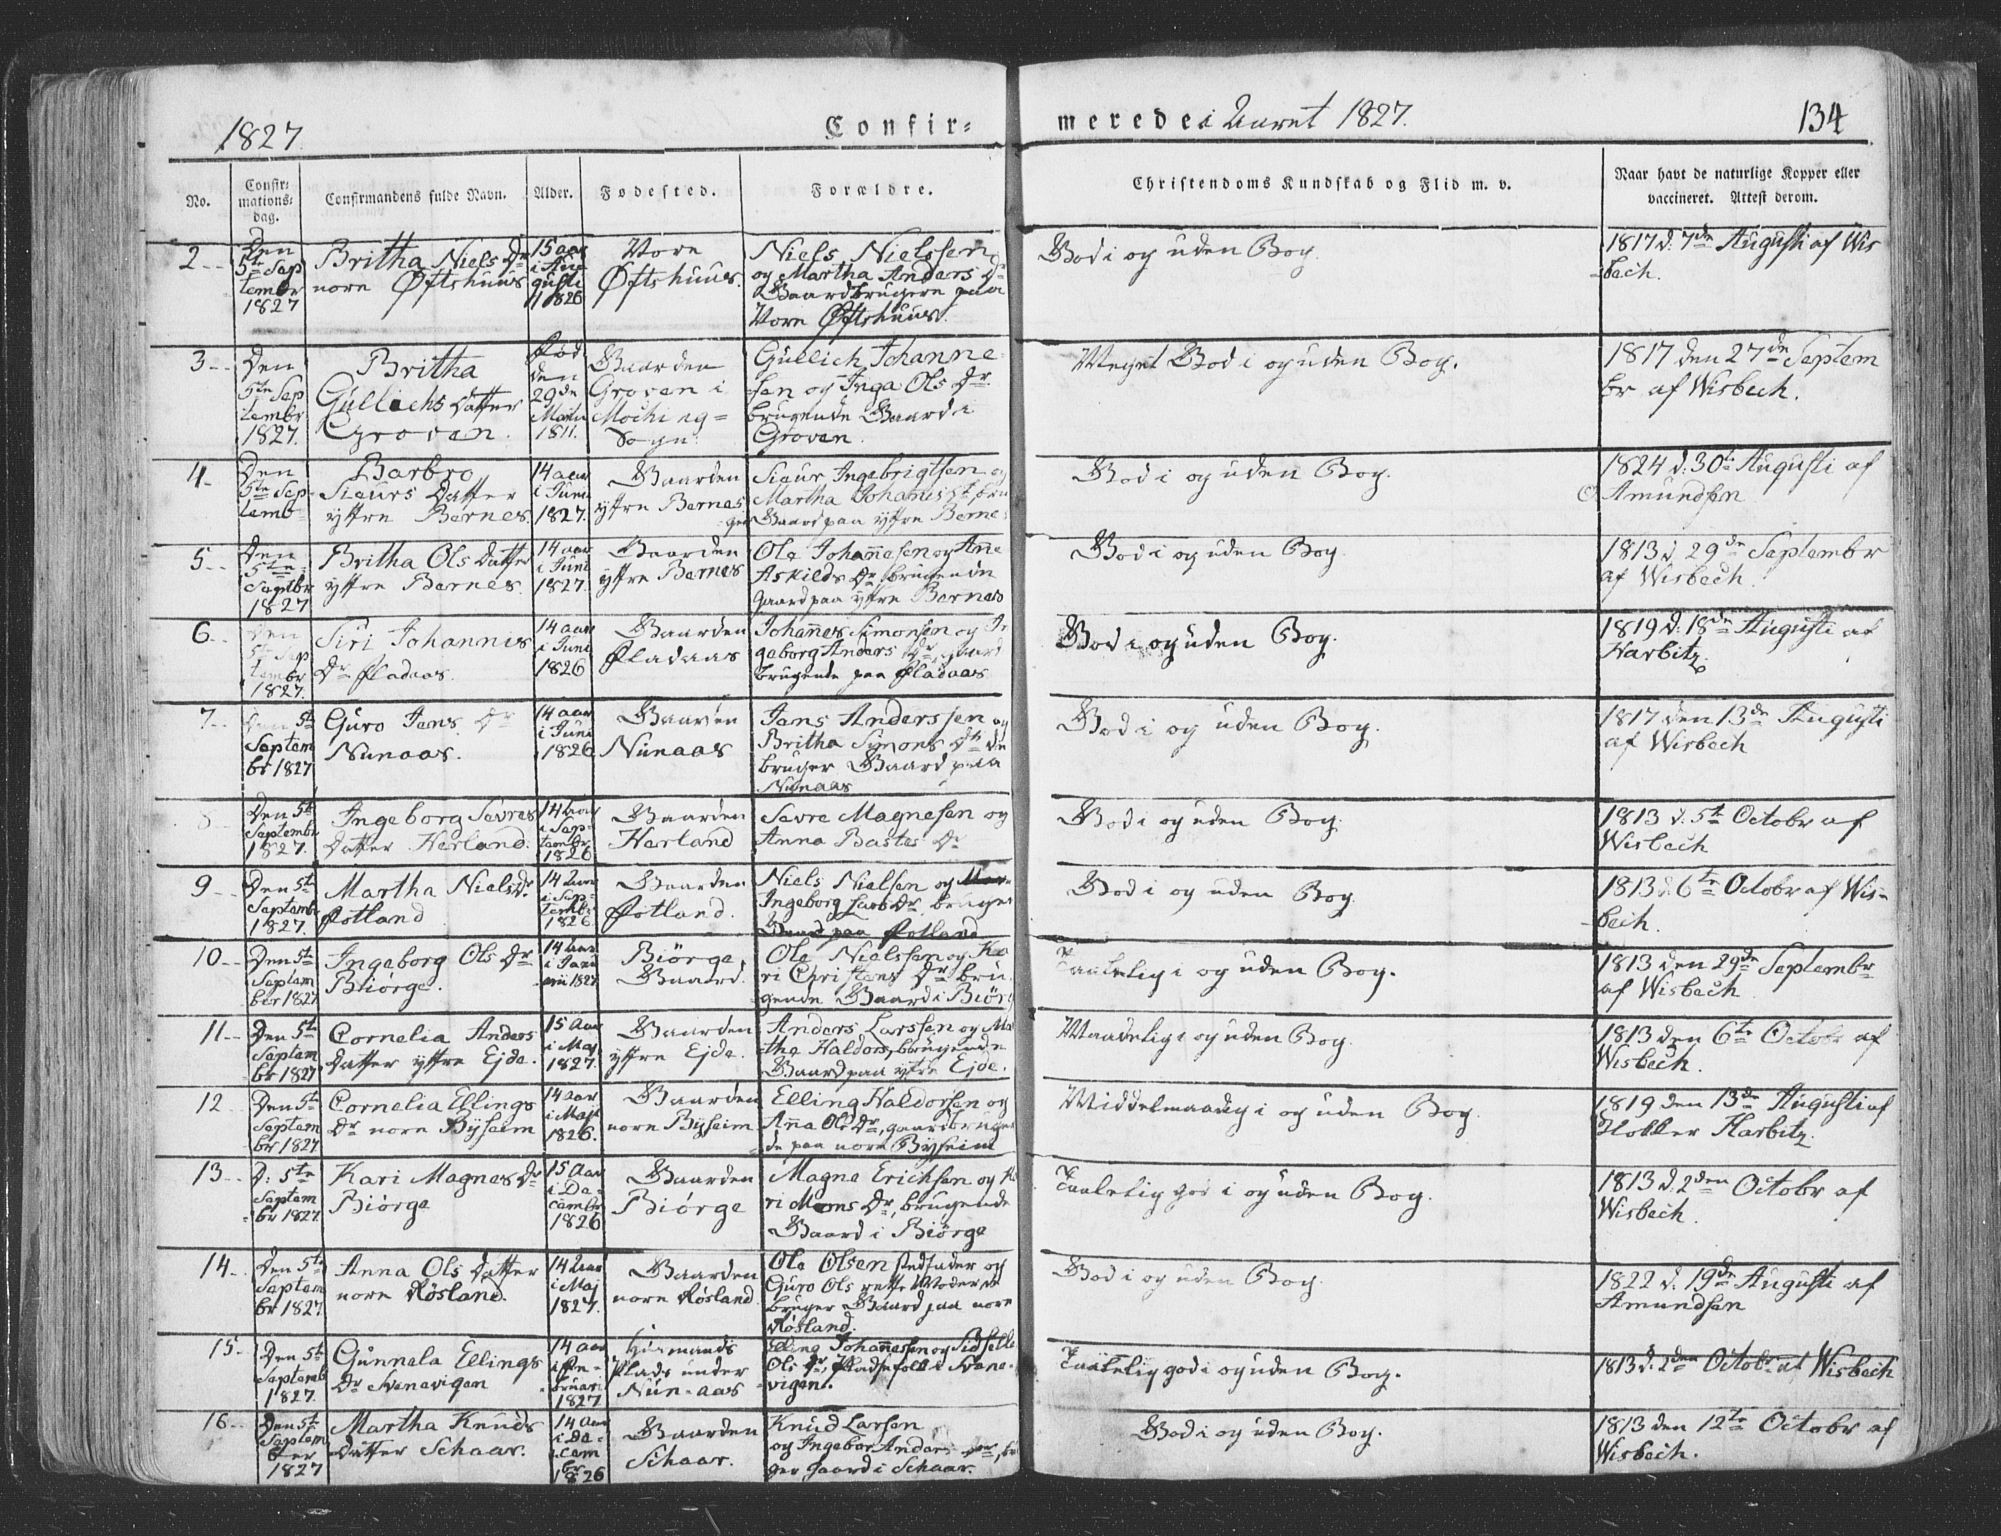 1827.
Confir-
meredei Aaret 1827.
134
No.
Confir-
mations-
dag.
Confirmandens fulde Navn.
Alder.
Fødested.
Forældre.
Christendoms Kundskab og Flid m. v.
Naar havt de naturlige Kopper eller
vaccineret. Attest derom.
2
Den
5te Sep
tember
1827
Britha Niels Dr
nore Øftshuus
15 aar
i Au
gusti
1826
Vore
Øftshuus.
Niels Nielssen
og Martha Anders Dr
Gaardbrugere paa
Vore Øftshuus.
God i og uden Bog.
1817 d. 7de Augusti af Wis
bech.
3
Den
5te Sep
tembr
1827.
Britha
Gullichs Datter
Groven.
Fød
den
29de
1811.
Gaarden
Groven i
Sogn.
Gullich Johanne-
sen og Inga Ols Dr
brugende Gaard i
Groven.
Meget God i og uden Bog.
1817 den 27de Septem
br af Wisbech.
4
Den
5te Sep-
temb
Barbro
Siurs Datter
yttre Bernes.
14 aar
i Juni
1827.
Gaarden
yttre Bernes
Siur Ingebrigtsen og
Martha Johannis Dr bru
ger Gaard paa yttre Berne
God i og uden Bog.
1824 d. 30te Augusti af
Amundsen
5
Den
5te
Septbr
1827
Britha Ols Datter
yttre Bernes.
14 aar
i Juni
1827.
Gaarden
yttre Bernes
Ole Johannesen og Ane
Askilds Dr, brugende
gaard paa yttre Bernes
God i og uden Bog.
1813 d. 29de Septembr
af Wisbech.
6
Den
5te Sep
tembr
1827.
Siri Johannis
Dr Fladaas.
14 aar
i Juni
1826
Gaarden
Fladaas
Johannes Simonsen og In
geborg Anders Dr, gaard
brugende paa Fladaas
God i og uden Bog.
1819 d. 18de Augusti af
Harbitz.
7
Den 5te
Septem
br 1827
Guro Jens Dr
Nunaas.
14 aar
i Juni
1826
Gaarden
Nunaas
Jens Anderssen og
Britha Simons Dr de
bruger Gaard paa
Nunaas
God i og uden Bog.
1817 den 13de Augusti
af Wisbech
8
Den 5te
Septembr
1827.
Ingeborg Sevres
Datter Herland.
14 aar
i Sep-
tembr
1826
Gaarden
Herland
Sevre Magnesen og
Anna Bastes Dr
God i og uden Bog.
1813 d. 5te Octobr af
Wisbech
9
Den 5te
Septembr
1827.
Martha Niels Dr
Fotland
14 Aar
i Sep-
tembr
1826
Gaarden
Fotland.
Niels Nielsen og
Ingeborg Lars Dr. bruger
Gaard paa Fotland
God i og uden Bog.
1813 d. 6te Octobr af Wis-
bech.
10
Den 5te
Septem
ber 1827
Ingeborg Ols Dr
Biørge.
14 aar
i Janu
arii 1827
Biørge
Gaard.
Ole Nielssen og Ka
ri Christens Dr bru
gende Gaard i Biørg
Taalelig i og uden Bog.
1813 den 29de Septembr
af Wisbech
11
Den 5te
Septem
br 1827
Cornelia Anders
Datter yttre Ejde.
15 Aar
i Maj
1827.
Gaarden
yttre Ejde.
Anders Larssen og Ma
tha Haldors, brugende
Gaard paa yttre Ejde.
Maadelig i og uden Bog.
1813 den 6te Octobr af
Wisbech.
12
Den 5te
Septem
br 1827
Cornelia Ellings
Dr nore Byseim
14 aar
i Maji
1826.
Gaarden
nore Byseim
Elling Haldorsen og
Anna Ols Dr, gaardbrugen
de paa nore Byseim
Middelmaadig i og uden Bog.
1819 den 13de Augusti af
Harbitz.
13
D: 5te
Septem
br 1827
Kari Magnes Dr
Biørge
15 Aar
i De-
cembr
1826
Gaarden
Biørge
Magne Erichsen og Ka
ri Mons Dr, brugende
Gaard i Biørge
Taalelig god i og uden Bog.
1813 d. 2den Octobr af
Wisbech.
14
Den 5te
Septem
br 1827
Anna Ols Datter
nore Røsland.
14 Aar
i Maj
1827.
Gaarden
nore Røsland
Ole Olsen stedfader og
Guro Ols rette Moder de
bruger Gaard paa nore
Røsland.
God i og uden Bog.
1822 d. 19de Augusti af
Amundsen
15
Den 5te
Septemb
1827.
Gunnela Ellings
Dr Svenevigen
14 aar
i Fe-
bruari
1827
Huusmands
Plads under
Nun-aas
Elling Johannesen og Sidselle
Ols Dr, Pladsefolk i Svene-
vigen.
Taalelig god i og uden Bog.
1813 d. 2den Octobr af Wisbech
16
Den 5te
Septem
ber
1827
Martha Knuds
Datter Schaar.
14 Aar
i De-
cem
br
1826
Gaarden
Schaar.
Knud Larsen
og Ingebor Anders Dr, bru
ger gaard i Schaar.
God i og uden Bog.
1813 den 12te Octobr af
Wisbech.